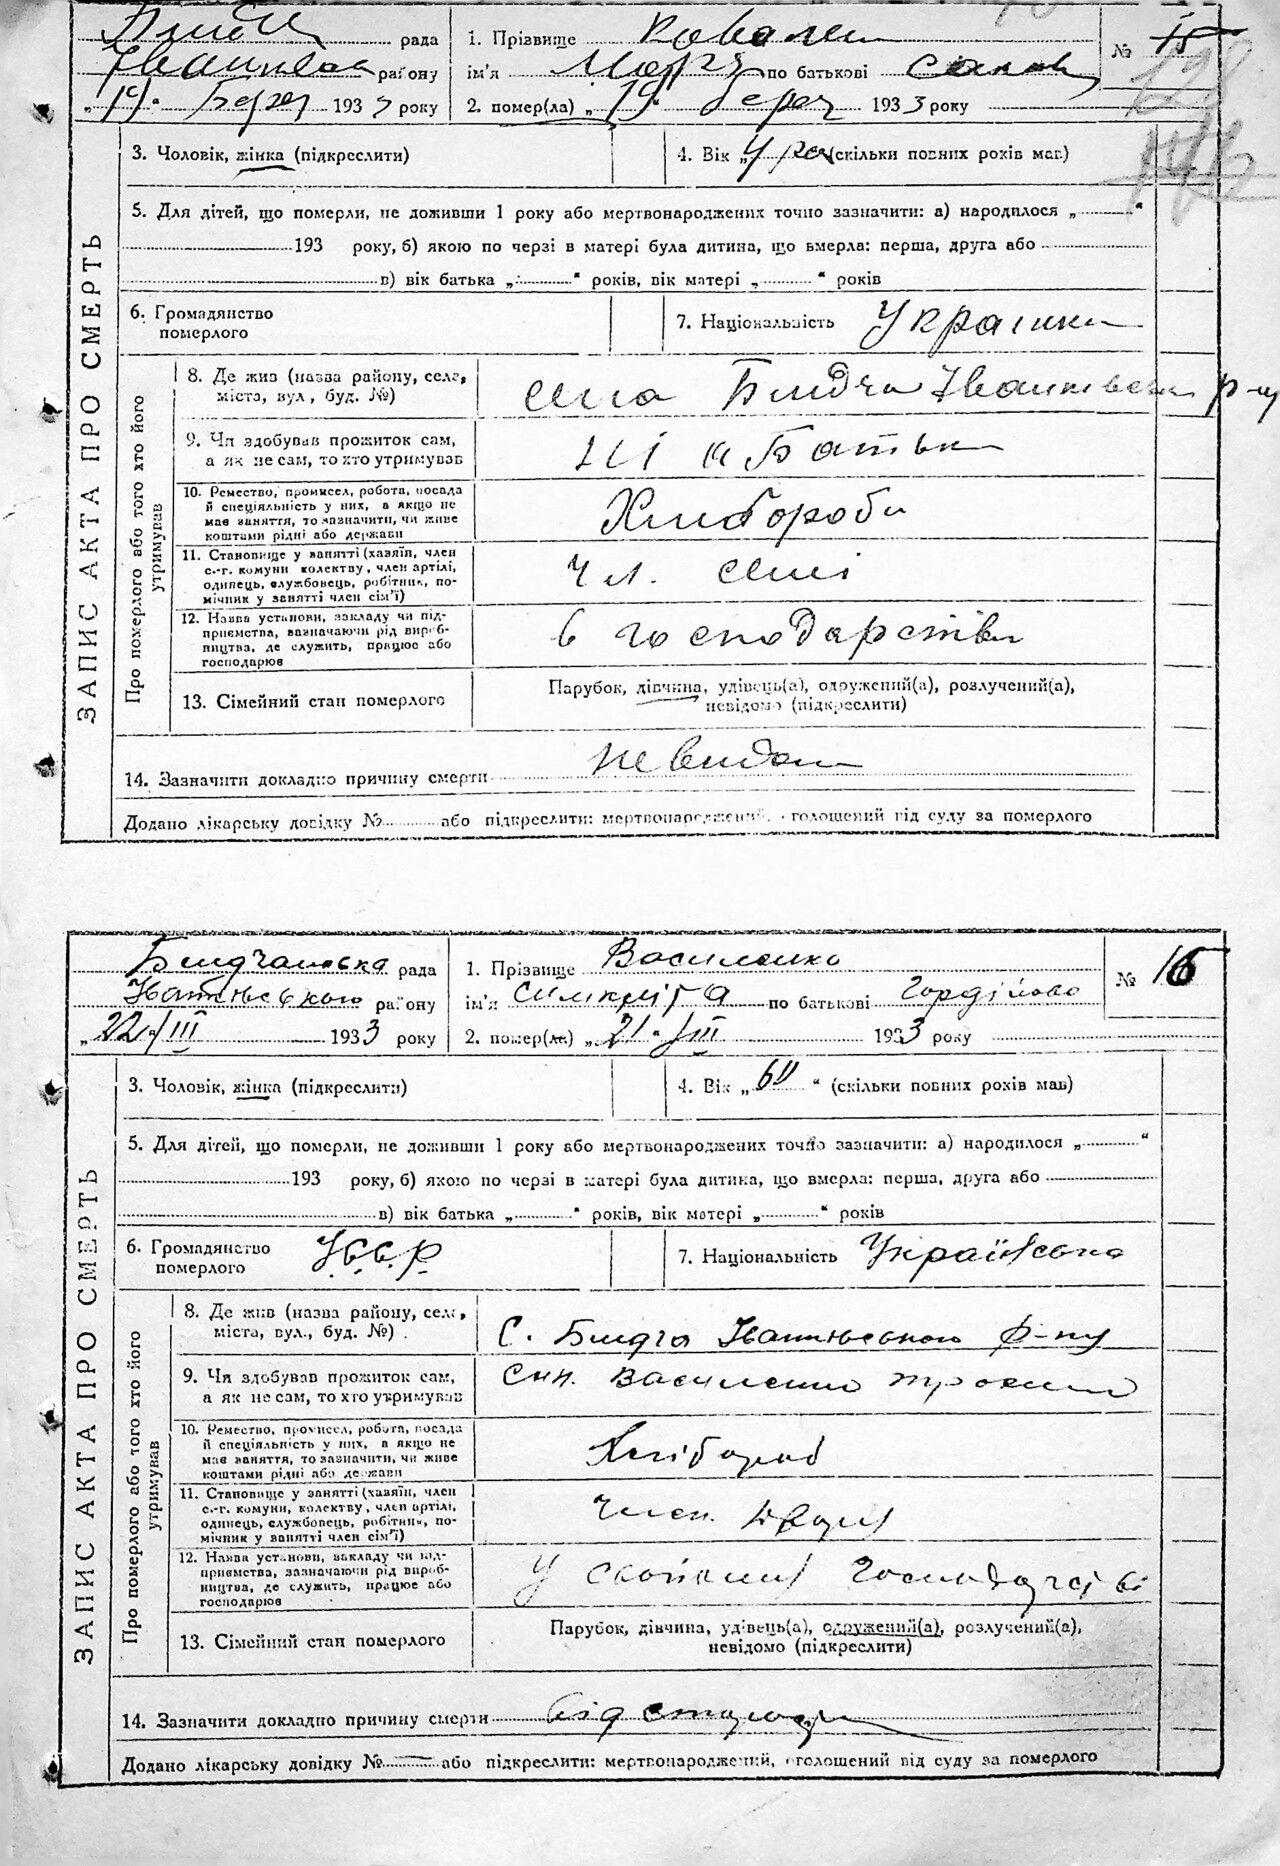 рада 1. Прізвище №
району ім'я по батькові
„19" 1933 року 2. помер(ла) „19" 1933 року
3. Чоловік, жінка (підкреслити) 4. Вік „4 (скільки повних років мав)
5. Для дітей, що померли, не доживши 1 року або мертвонароджених точно зазначити: а) народилося „ "
193 року, б) якою по черзі в матері була дитина, що вмерла: перша, друга або
в) вік батька „ " років, вік матері „ " років
6. Громадянство
померлого
7. Національність Українка
ЗАПИС АКТА ПРО СМЕРТЬ
Про померлого або того хто його утримував
8. Де жив (назва району, села,
міста, вул, буд. №)
села Блидча Іванківськ р-ну
9. Чи здобував прожиток сам,
а як не сам, то хто утримував
Ні а Батьки
10. Ремество, промисел, робота, посада
й спеціяльність у них, а якщо не
має заняття, то зазначити, чи живе
коштами рідні або держави
Хлибороби
11. Становище у занятті (хазяїн, член
с.-г. комуни колективу, член артілі,
одинець, службовець, робітник, по-
мічник у занятті член сім'ї)
чл. симі
12. Назва установи, закладу чи під-
приємства, зазначаючи рід вироб-
ництва, де служить, працює або
господарює
в господарстві
13. Сімейний стан померлого
Парубок, дівчина, удівець(а), одружений(а), розлучений(а),
невідомо (підкреслити)
14. Зазначити докладно причину смерти
Додано лікарську довідку № або підкреслити: мертвонароджений, оголошений від суду за померлого
рада 1. Прізвище Василенко № 16
району ім'я по батькові
„22"/III 1933 року 2. помер(ла) „21"/III 1933 року
3. Чоловік, жінка (підкреслити) 4. Вік „60" (скільки повних років мав)
5. Для дітей, що померли, не доживши 1 року або мертвонароджених точно зазначити: а) народилося „ "
193 року, б) якою по черзі в матері була дитина, що вмерла: перша, друга або
в) вік батька „ " років, вік матері „ " років
6. Громадянство
померлого
7. Національність Українська
ЗАПИС АКТА ПРО СМЕРТЬ
Про померлого або того хто його утримував
8. Де жив (назва району, села,
міста, вул., буд. №)
С. Блидча Іванківського р-ну
9. Чи здобував прожиток сам,
а як не сам, то хто утримував
Син. Василенко
10. Ремество, промисел, робота, посада
й спеціяльність у них, а якщо не
має заняття, то зазначити, чи живе
коштами рідні або держави
Хлібороб
11. Становище у занятті (хазяїн, член
с.-г. комуни, колективу, член артілі,
одинець, службовець, робітник, по-
мічник у занятті член сім'ї)
Член. двору
12. Назва установи, закладу чи під-
приємства, зазначаючи рід вироб-
ництва, де служить, працює або
господарює
У
13. Сімейний стан померлого
Парубок, дівчина, удівець(а), одружений(а), розлучений(а),
невідомо (підкреслити)
14. Зазначити докладно причину смерти від
Додано лікарську довідку № або підкреслити: мертвонароджений, оголошений від суду за померлого